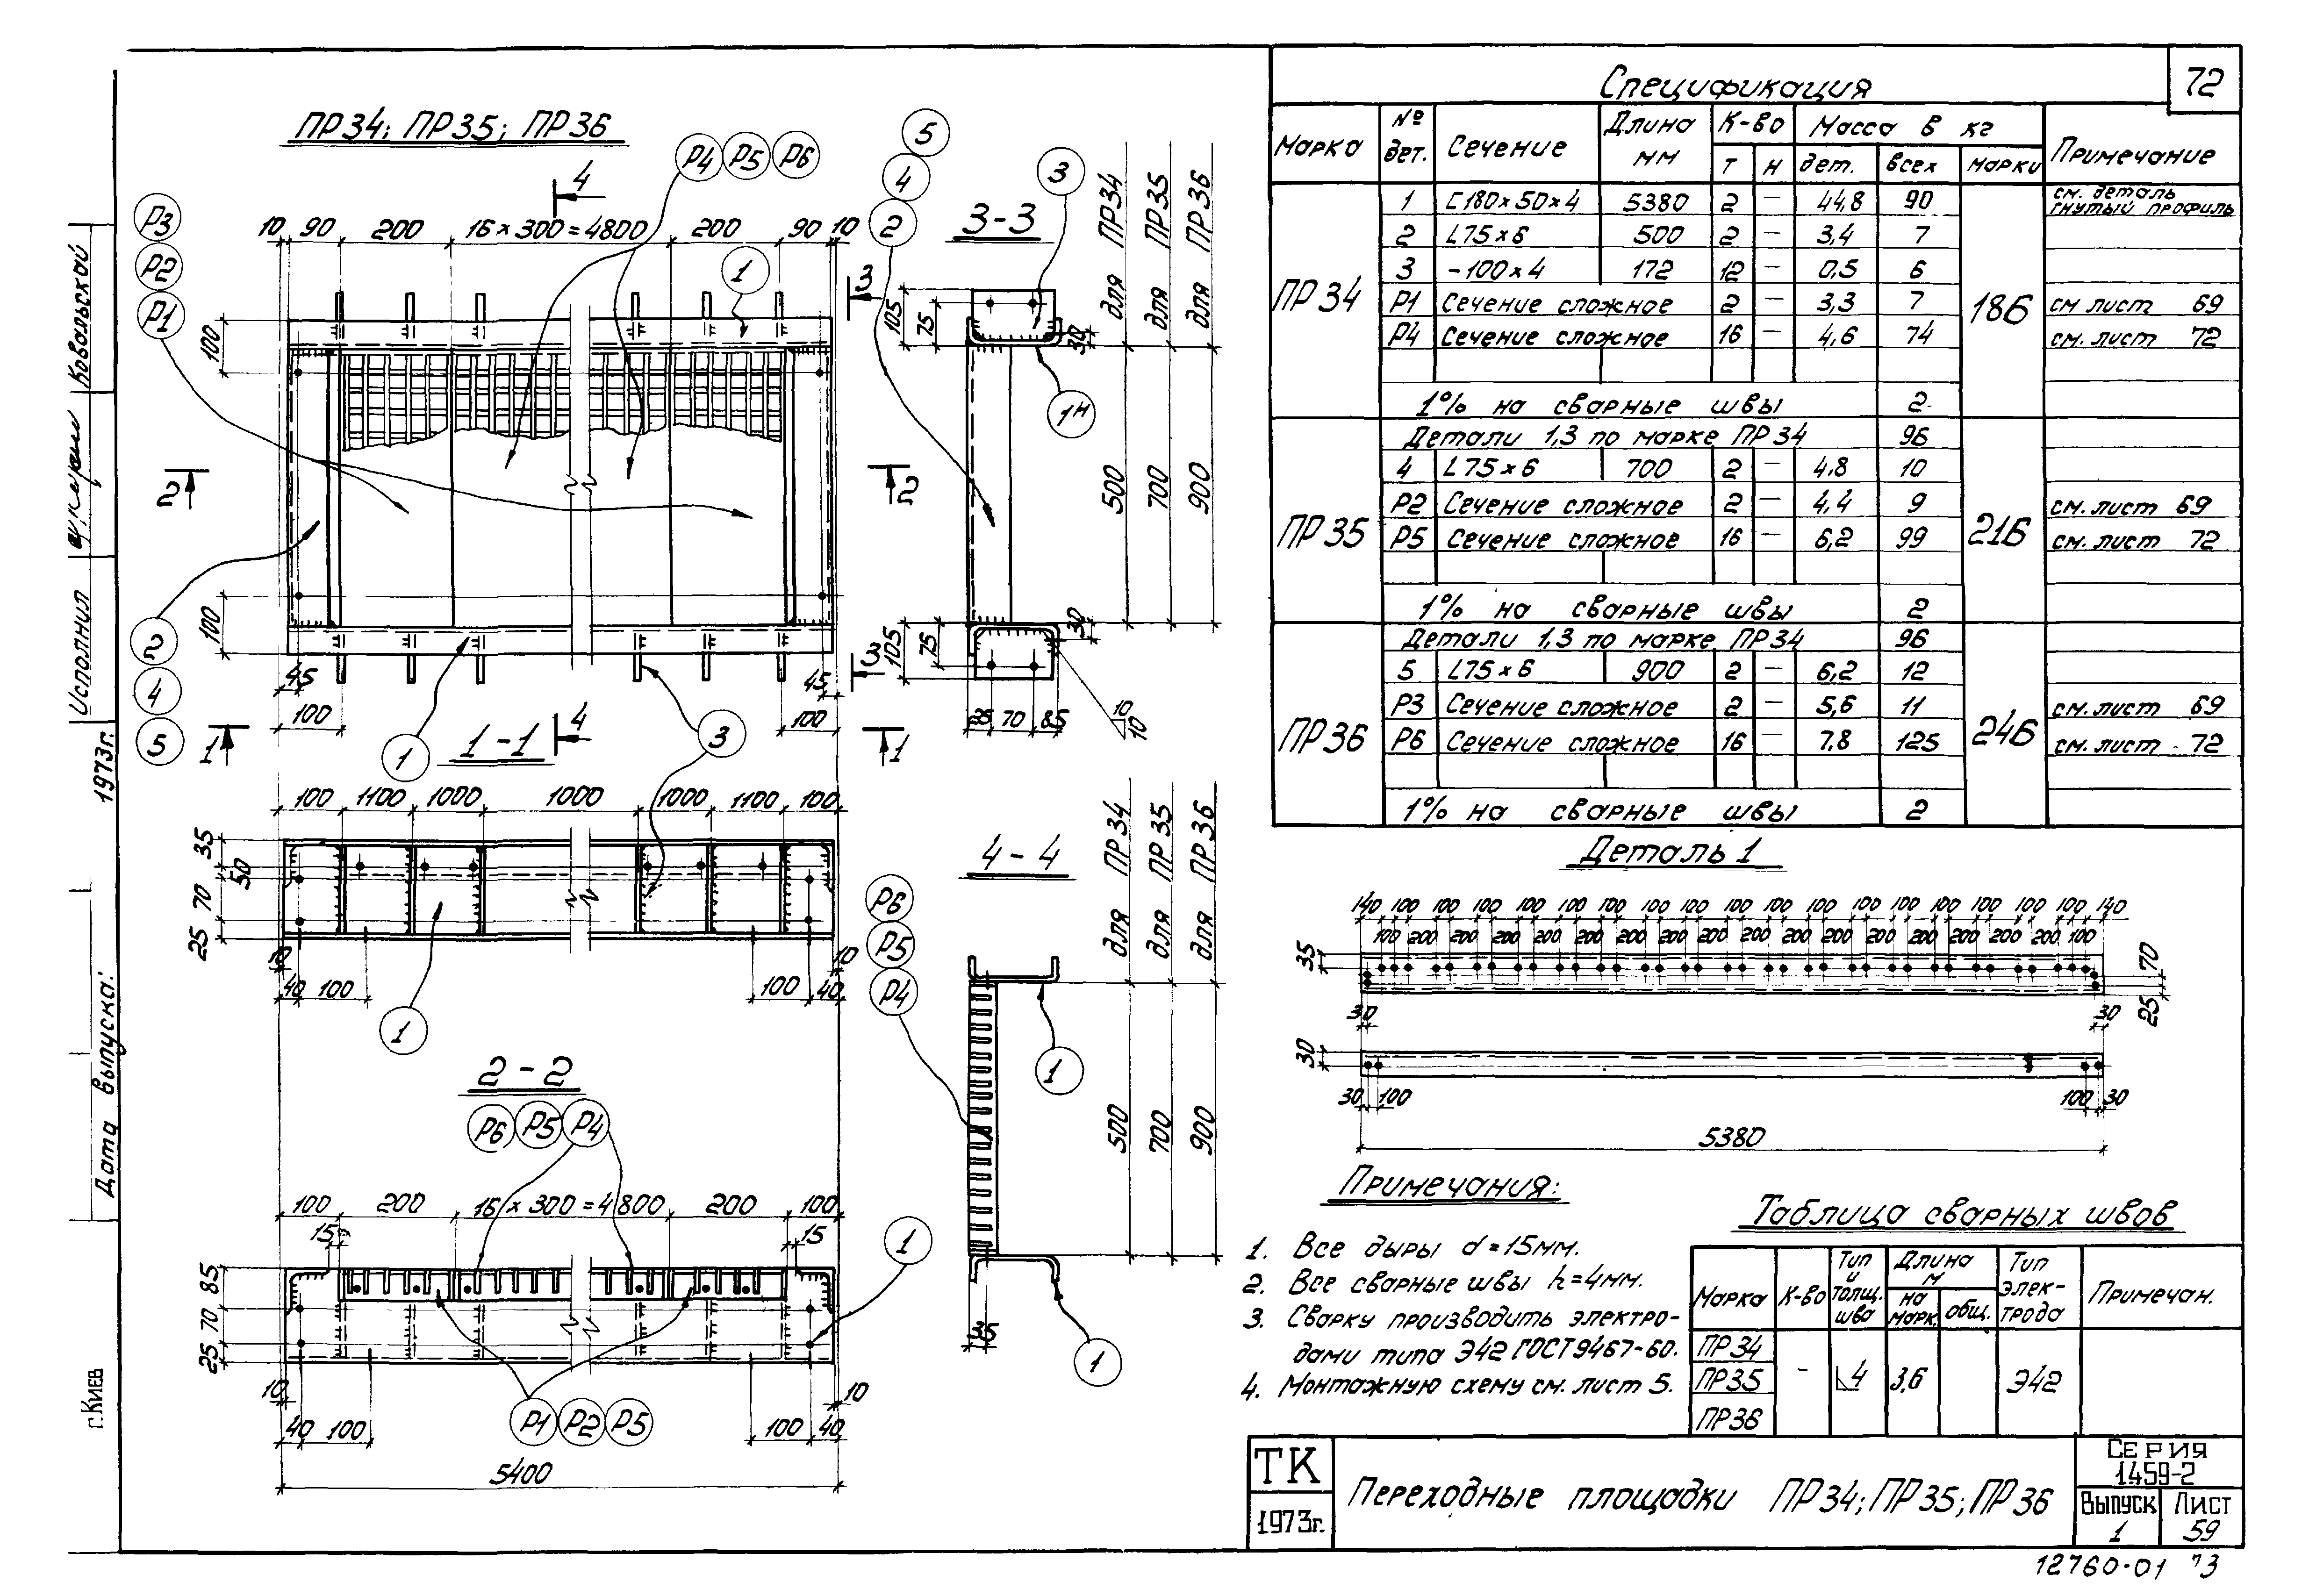 72
Спецификация
Марка № дет. Сечение Длина мм К-во Масса в кг Примечание
т н дет. всех марки
ПР34 186
1 [180×50×4 5380 2 – 44,8 90 см. деталь гнутый профиль
2 L75×6 500 2 – 3,4 7
3 –100×4 172 12 – 0,5 6
Р1 Сечение сложное 2 – 3,3 7 см лист 69
Р4 Сечение сложное 16 – 4,6 74 см. лист 72
1% на сварные швы 2
ПР35 216
Детали 1,3 по марке ПР34 96
4 L75×6 700 2 – 4,8 10
Р2 Сечение сложное 2 – 4,4 9 см. лист 69
Р5 Сечение сложное 16 – 6,2 99 см. лист 72
1% на сварные швы 2
ПР36 246
Детали 1,3 по марке ПР34 96
5 L75×6 900 2 – 6,2 12
Р3 Сечение сложное 2 – 5,6 11 см. лист 69
Р6 Сечение сложное 16 – 7,8 125 см. лист 72
1% на сварные швы 2
ПР34; ПР35; ПР36
Р4 Р5 Р6
4
Р3
Р2
Р1
10 90 200 16×300=4800 200 90 10
1
3
100
2 2
100
2
4
5
45 45
3
100 100
1 1
4
1
3
5
4
2
3-3
3
для ПР34
для ПР35
для ПР36
105
75
30
1н
500
700
900
105
75
30
25 70 85
10
10
1-1
100 1100 1000 1000 1000 1100 100
35
50
70
25
10 10
40 100 100 40
1
2-2
Р6 Р5 Р4
100 200 16×300=4800 200 100
15 15
1
85
70
25
10 10
40 100 100 40
Р1 Р2 Р5
5400
4-4
для ПР34
для ПР35
для ПР36
Р6
Р5
Р4
1
500
700
900
35
1
Деталь 1
140 100 100 100 100 100 100 100 100 100 100 100 100 100 100 100 100 100 140
100 200 200 200 200 200 200 200 200 200 200 200 200 200 200 200 100
35
70
25
30 30
30
30 100 100 30
5380
Примечания:
1. Все дыры d=15мм.
2. Все сварные швы h=4мм.
3. Сварку производить электро-
дами типа Э42 ГОСТ 9467-60.
4. Монтажную схему см. лист 5.
Таблица сварных швов
Марка К-во Тип и толщ. шва Длина м Тип элек-трода Примечан.
на марк. общ.
ПР34
ПР35 – 4 3,6 Э42
ПР36
ТК
1973г.
Переходные площадки ПР34; ПР35; ПР36
Серия
1459-2
Выпуск Лист
1 59
12760-01 73
Ковальской
Исполнил
1973г.
Дата выпуска:
г. Киев